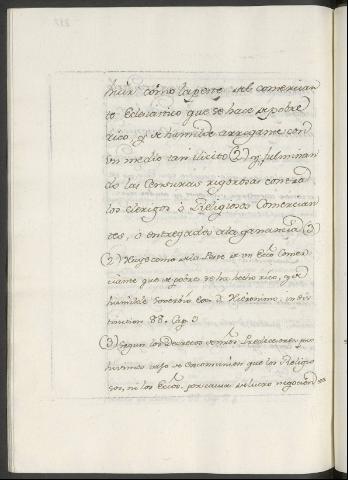 huir como la peste del comercian
te Eclesiastico que se hace de pobre
rico, y de humilde arrogante con
un medio tan ilicito (2) y fulminan
do las Censuras rigorosas contra
los clerigos ò Religiosos Comercian
tes, ò entregados a la ganancia (3)
(2) Huye como de la Peste de un Ecco Comer
ciante que de pobre se ha hecho rico, y de
humilde sovervio. San Hieronimo, in
88. Cap. 5
(3) Segun los Decretos de mis Predecesores pro
hivimos vajo de excomunion que los Religio
sos, ni los Eccos. por causa de lucro negocien